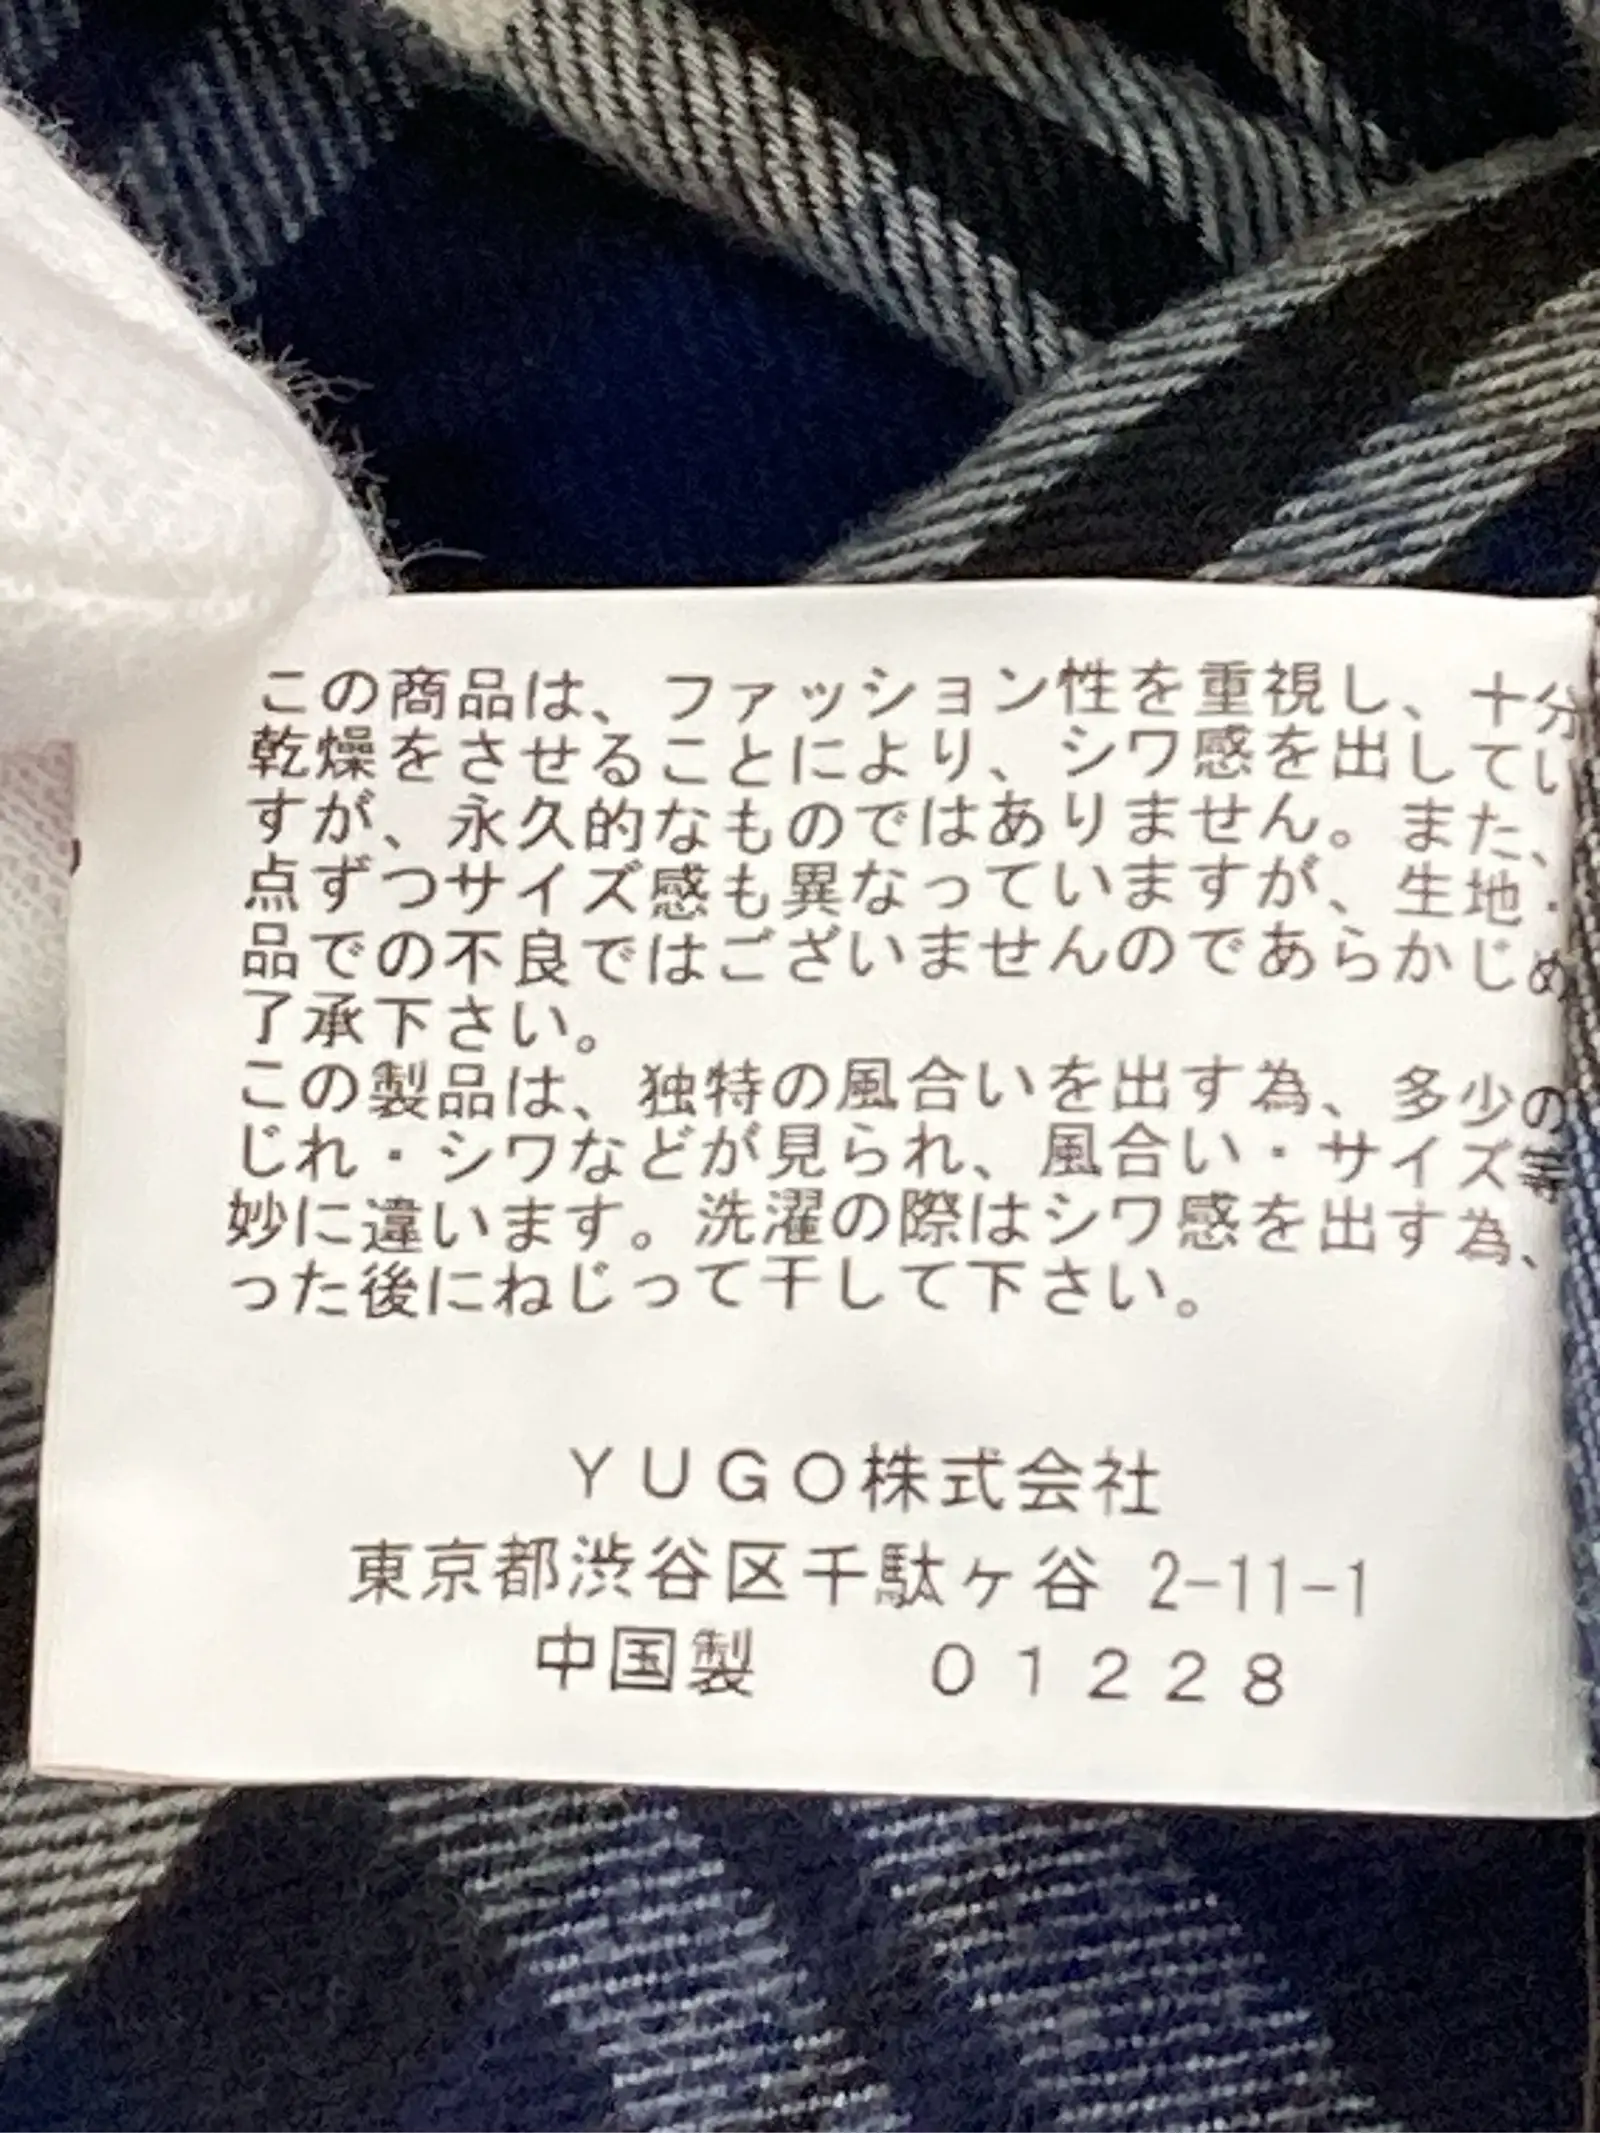 この商品は、ファッション性を重視し、十分
乾燥をさせることにより、シワ感を出してい
すが、永久的なものではありません。また、
点ずつサイズ感も異なっていますが、生地・
品での不良ではございませんのであらかじめ
了承下さい。
この製品は、独特の風合いを出す為、多少の
じれ・シワなどが見られ、風合い・サイズ等
妙に違います。洗濯の際はシワ感を出す為、
った後にねじって干して下さい。
ＹＵＧＯ株式会社
東京都渋谷区千駄ヶ谷 2-11-1
中国製 ０１２２８